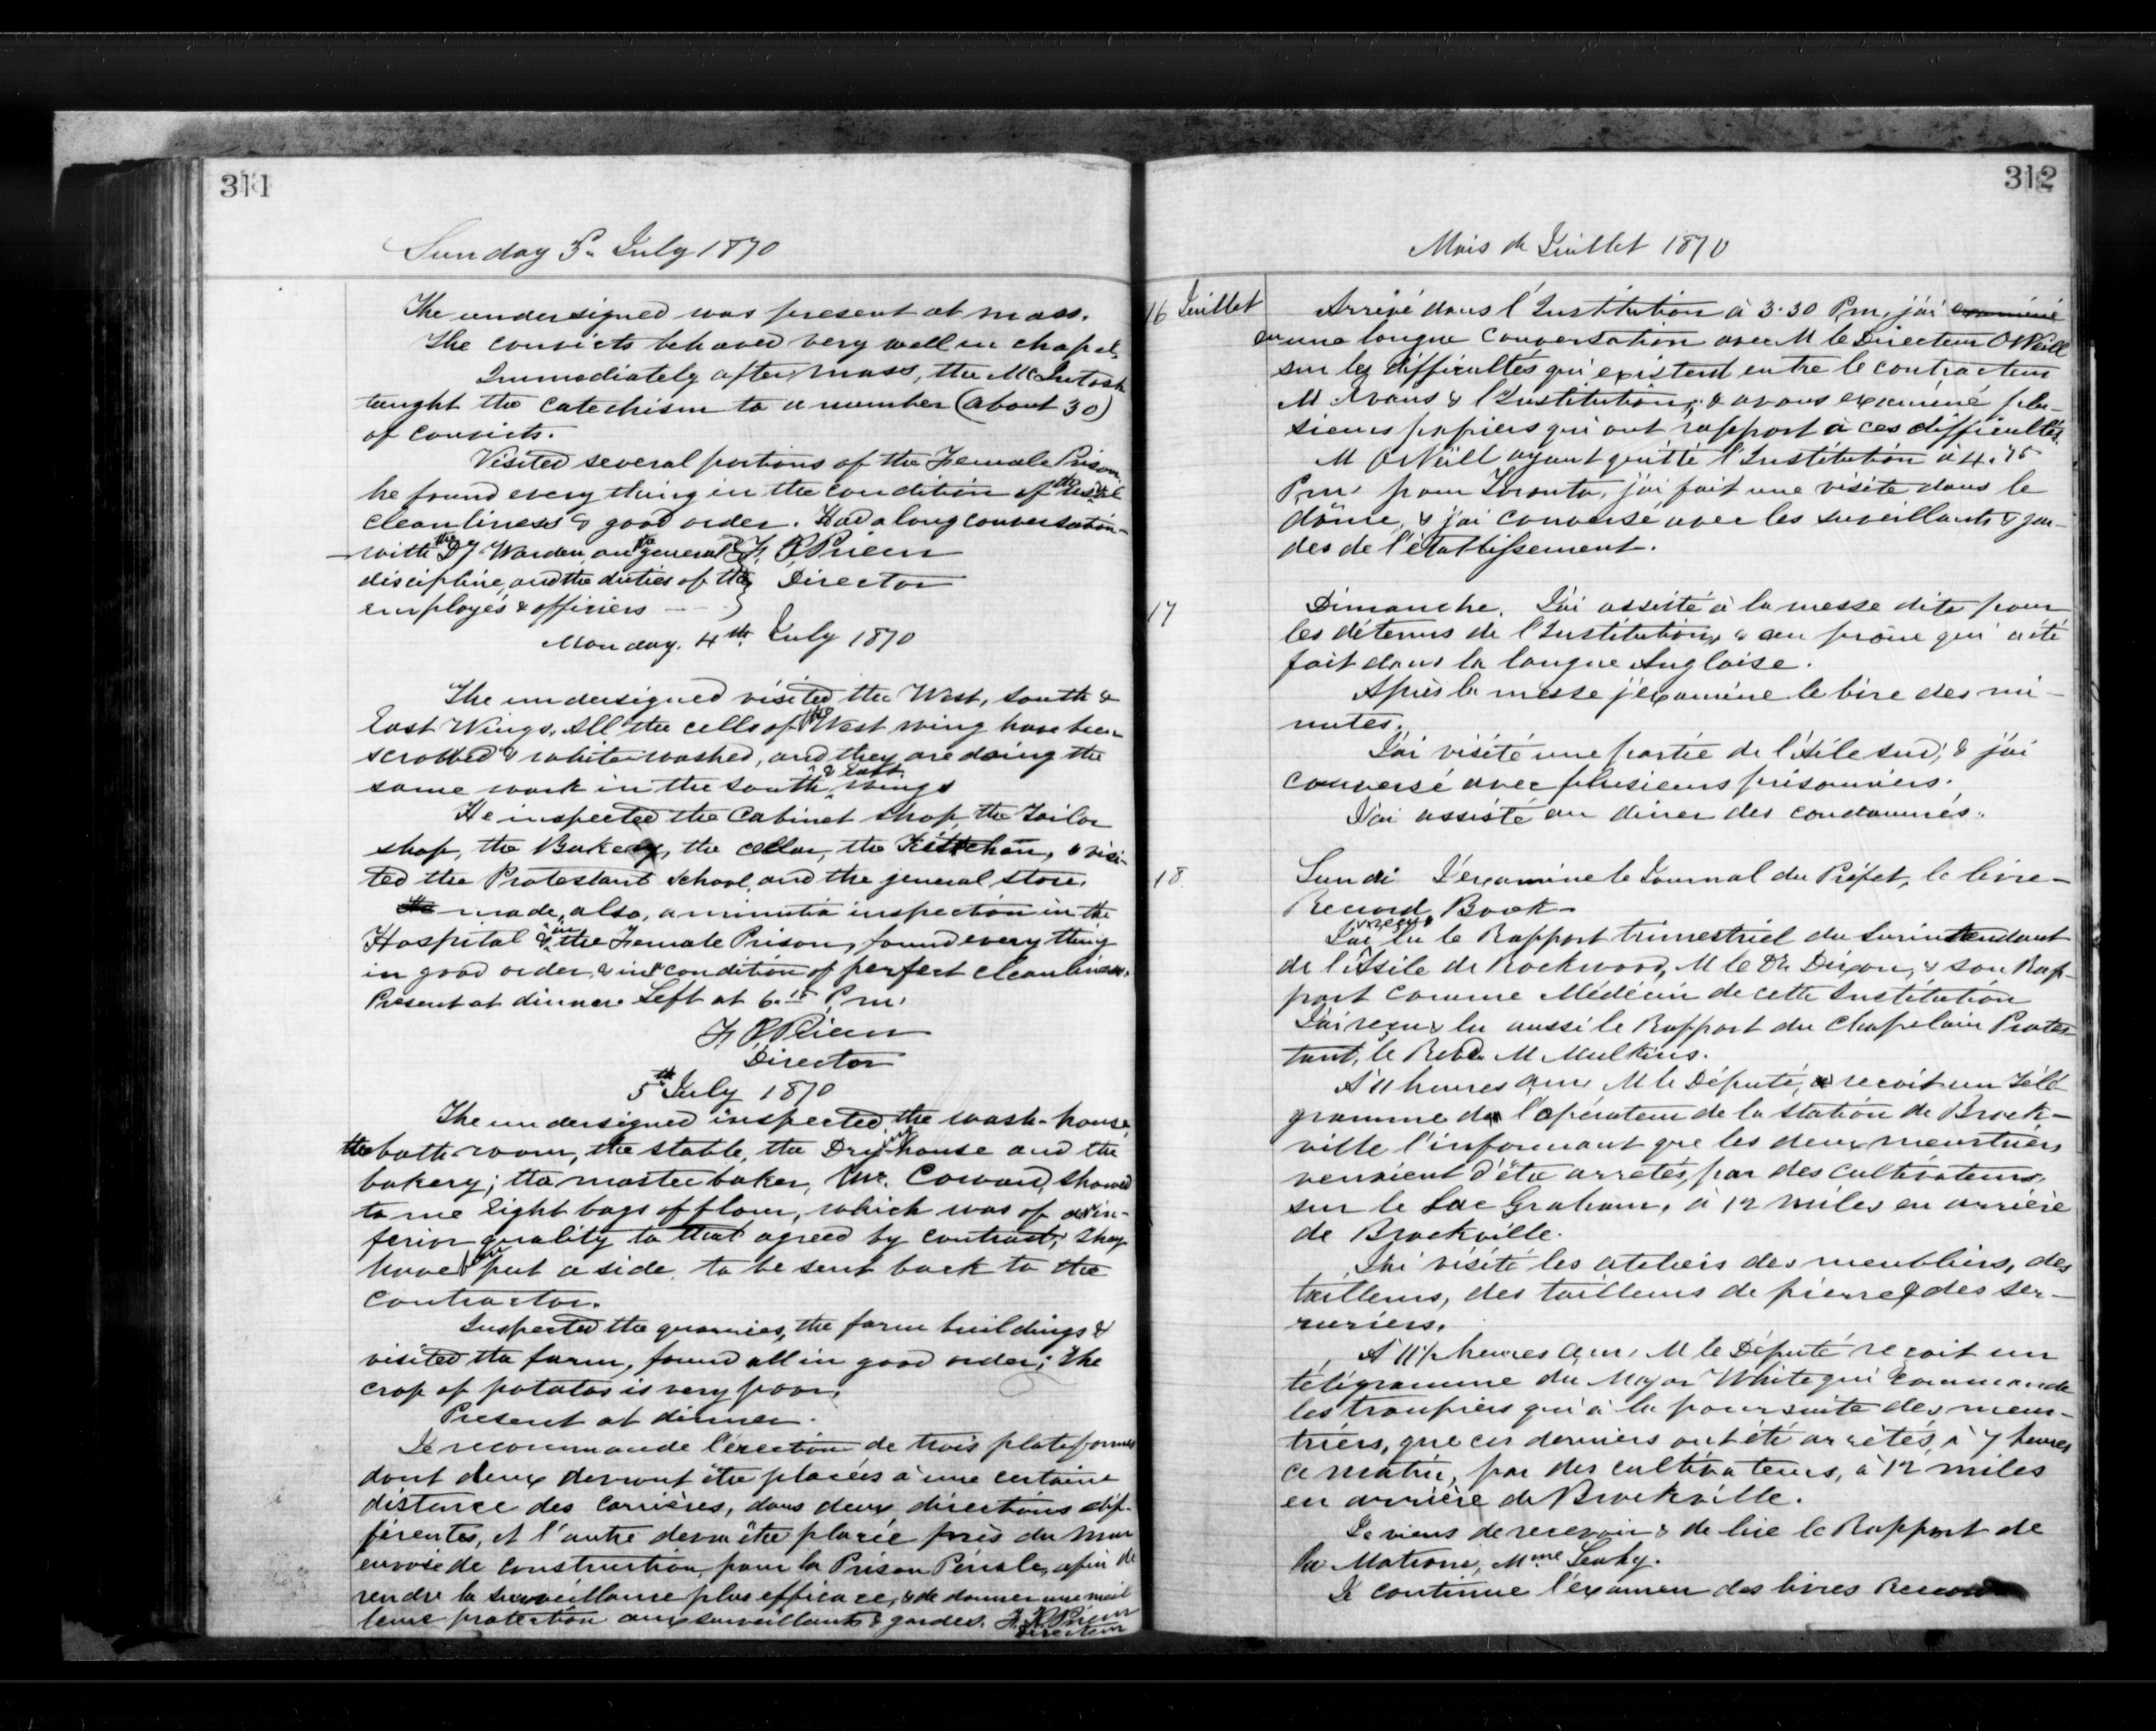 311
Sunday 3d July 1870
The undersigned was present at mass.
The convicts behaved very well in chapel.
Immediately after mass, the McIntosh
taught the catechism to a number (about 30)
of convicts.
Visited several portions of the Female Prison,
he found every thing in the condition of the usual
cleanliness & good order. Had a long conversation
with the Dy. Warden, on the general F. X. Prieur
discipline, and the duties of the Director
employés & officiers
Monday. 4th July 1870
The undersigned visited the West, South &
East Wings. All the cells of the West wing have been
scrobbed & white washed, and they are doing the
same work in the South & East wings
He inspected the Cabinet shop, the Tailor
shop, the Bakery, the cellar, the Kittchen, & visi-
ted the Protestant School, and the general store.
He made, also, a minutia inspection in the
Hospital & in the Female Prison, found every thing
in good order, & in condition of perfect cleanliness.
Present at dinner. Left at 6.15 P.m.
F. X. Prieur
Director
5th July 1870
The undersigned inspected the wash-house,
the bath room, the stable, the Drying house and the
bakery; the master baker, Mr. Coward, showed
to me eight bags of flour, which was of an in-
ferior quality to that agreed by contract; they
have been put aside, to be sent back to the
contractor.
Inspected the quarries, the farm buildings &
visited the farm, found all in good order; The
crop of potatos is very poor.
Present at dinner.
Je recommande l'érection de trois plateformes
dont deux devront être placées à une certaine
distance des carrières, dans deux directions dif-
férentes, et l'autre devra être placée près du mur
en voie de construction, pour la Prison Pénale, afin de
rendre la surveillance plus efficace, & de donner une meil
leure protection aux surveillants & gardes. F. X. Prieur
Directeur
312
Mois de Juillet 1870
16 Juillet Arrivé dans l'Institution à 3.30 P.m, j'ai examiné
eu une longue conversation avec M le Directeur O'Neill
sur les difficultés qui existent entre le contracteur
M Evans & l'Institution; & avons examiné plu-
sieurs papiers qui ont rapport à ces difficultés.
M O'Neill ayant quitté l'Institution à 4.45
P.m. pour Toronto, j'ai fait une visite dans le
dôme, & j'ai conversé avec les surveillants & gar-
des de l'établissement.
17 Dimanche. J'ai assisté à la messe dite pour
les détenus de l'Institution, & au prône qui a été
fait dans la langue Anglaise.
Après la messe j'examine le livre des mi-
nutes.
J'ai visité une partie de l'Aile sud; & j'ai
conversé avec plusieurs prisonniers.
J'ai assisté au diner des condamnés.
18. Lundi J'examine le Journal du Préfet, le livre-
Record Book-
J'ai reçu & lu le Rapport trimestriel du Surintendant
de l'Asile de Rockwood, M le Dr. Dixon, & son Rap-
port comme Médécin de cette Institution
J'ai reçu & lu aussi le Rapport du Chapelain Protes-
tant, le Revd. M Mulkins.
A 11 heures am, M le Député, reçoit un Télé
gramme de l'opérateur de la station de Brock-
ville l'informant que les deux meurtriers
venaient d'être arretés, par des cultivateurs,
sur le Lac Graham, à 12 miles en arrière
de Brockville.
J'ai visité les ateliers des meubliers, des
tailleurs, des tailleurs de pierre & des ser-
ruriers.
A 11½ heures a.m. M le Député reçoit un
télégramme du Major White qui commande
les troupiers qui à la poursuite des meur-
triers, que ces derniers ont été arrêtés, à 7 heures
ce matin, par des cultivateurs, à 12 miles
en arrière de Brockville.
Je viens de recevoir & de lire le Rapport de
la Matrone, Mme Leahy.
Je continue l'examen des livres Record